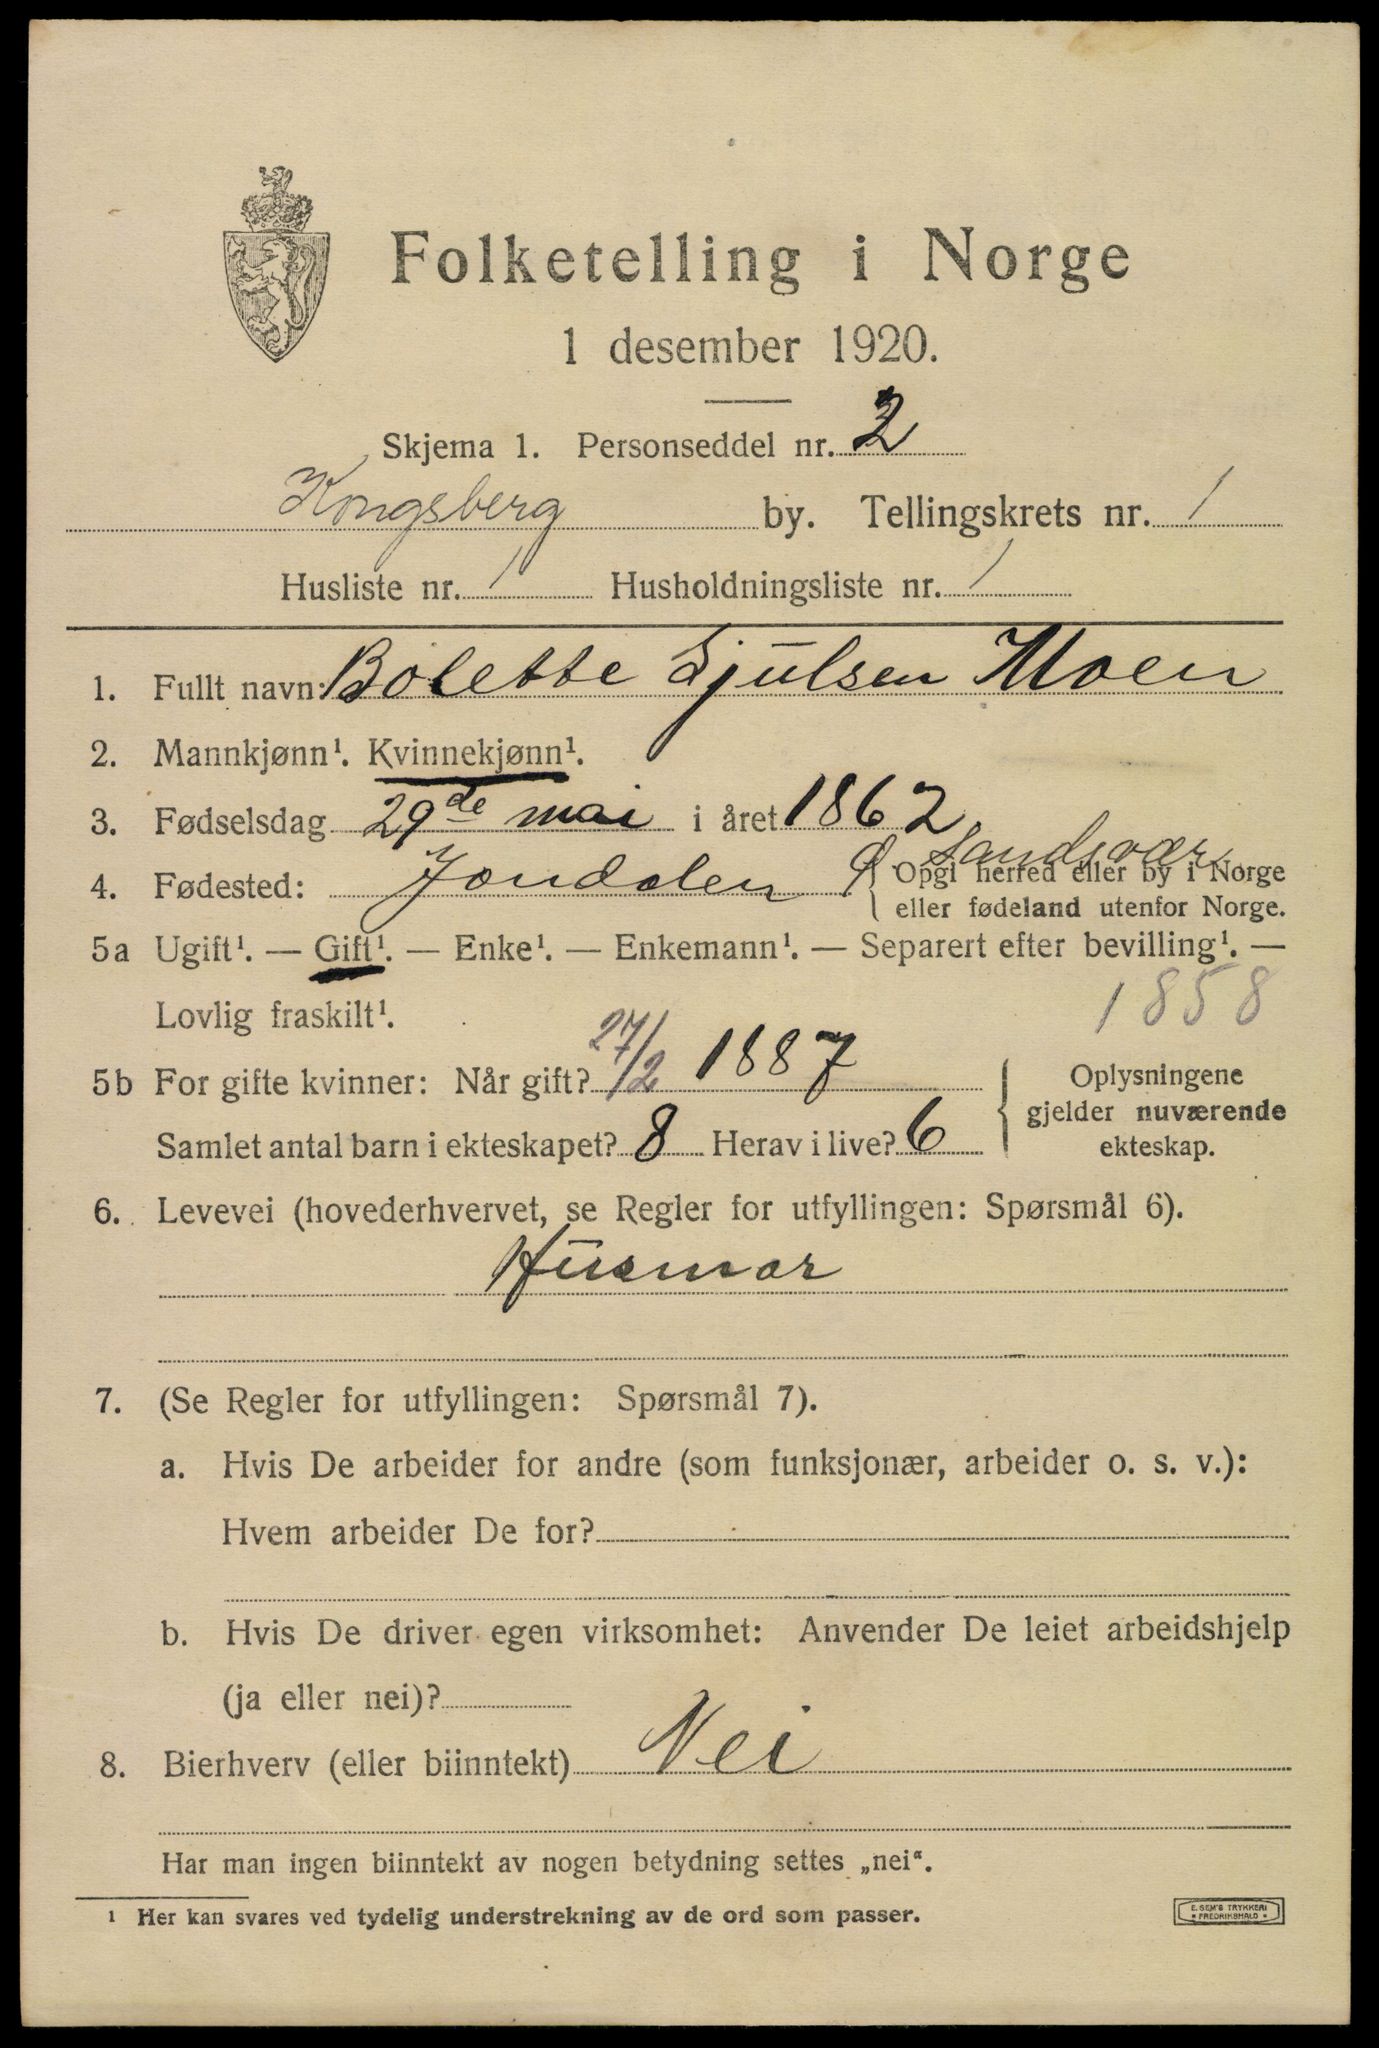 Folketelling i Norge
1 desember 1920.
Skjema 1. Personseddel nr. 2
Kongsberg by. Tellingskrets nr. 1
Husliste nr. 1 Husholdningsliste nr. 1
1. Fullt navn: Bolette Gjulsen Moen
2. Mannkjønn¹. Kvinnekjønn¹.
3. Fødselsdag 29de mai i året 1862
Ø Sandsvær
4. Fødested: Jondalen { Opgi herred eller by i Norge
eller fødeland utenfor Norge.
5a Ugift¹. — Gift¹. — Enke¹. — Enkemann¹. — Separert efter bevilling¹. —
Lovlig fraskilt¹. 1858
5b For gifte kvinner: Når gift? 27/2 1887
Samlet antal barn i ekteskapet? 8 Herav i live? 6
{ Oplysningene
gjelder nuværende
ekteskap.
6. Levevei (hovederhvervet, se Regler for utfyllingen: Spørsmål 6).
Husmor
7. (Se Regler for utfyllingen: Spørsmål 7).
a. Hvis De arbeider for andre (som funksjonær, arbeider o. s. v.):
Hvem arbeider De for?
b. Hvis De driver egen virksomhet: Anvender De leiet arbeidshjelp
(ja eller nei)?
8. Bierhverv (eller biinntekt) Nei
Har man ingen biinntekt av nogen betydning settes „nei“.
¹ Her kan svares ved tydelig understrekning av de ord som passer.
E. SEM'S TRYKKERI
• FREDRIKSHALD •